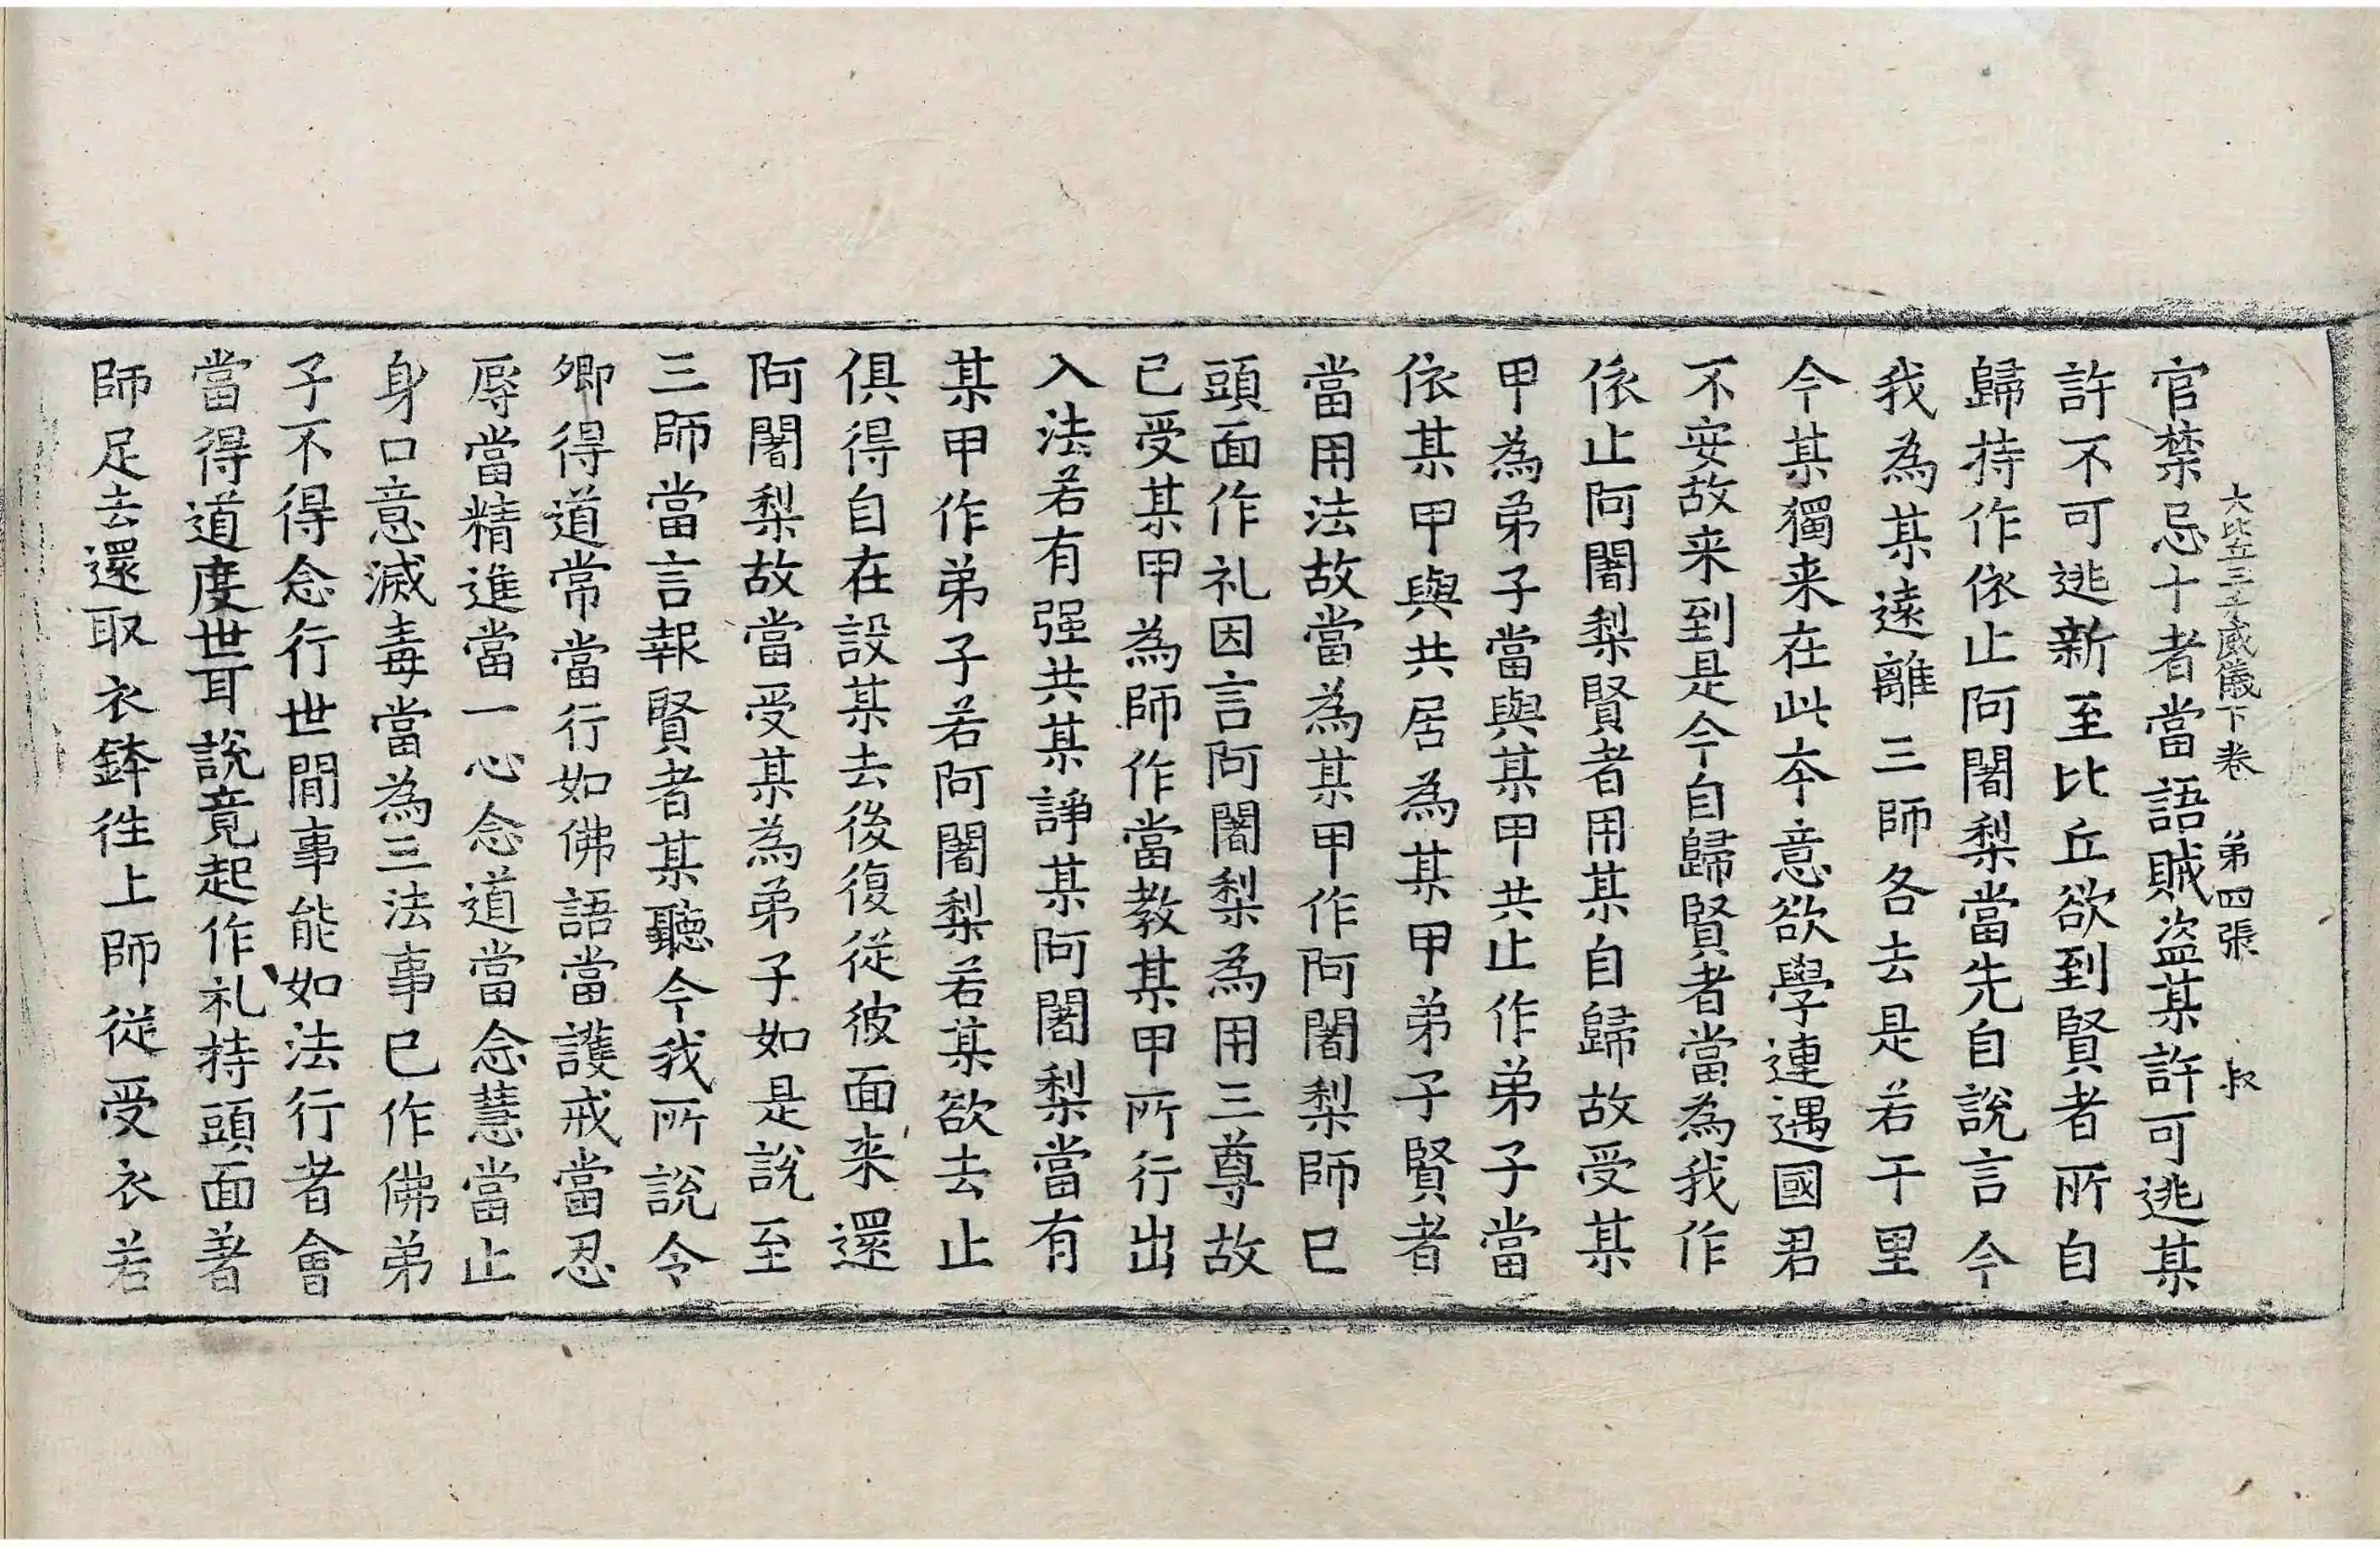 大比丘三千威儀下卷　弟四張　叔
官禁忌十者當語賊盗某許可逃某
許不可逃新至比丘欲到賢者所自
歸持作依止阿闍梨當先自說言今
我為某遠離三師各去是若干里
今某獨来在此夲意欲學連遇國君
不安故来到是今自歸賢者當為我作
依止阿闍梨賢者用某自歸故受某
甲為弟子當與某甲共止作弟子當
依某甲與共居為某甲弟子賢者
當用法故當為某甲作阿闍梨師已
頭面作礼因言阿闍梨為用三尊故
已受某甲為師作當教某甲所行出
入法若有强共某諍某阿闍梨當有
某甲作弟子若阿闍梨若某欲去止
俱得自在設某去後復従彼面来還
阿闍梨故當受某為弟子如是說至
三師當言報賢者某聽今我所說令
卿得道常當行如佛語當護戒當忍
辱當精進當一心念道當念慧當止
身口意滅毒當為三法事已作佛弟
子不得念行世間事能如法行者會
當得道度世耳說竟起作礼持頭面著
師足去還取衣鉢徃上師従受衣若